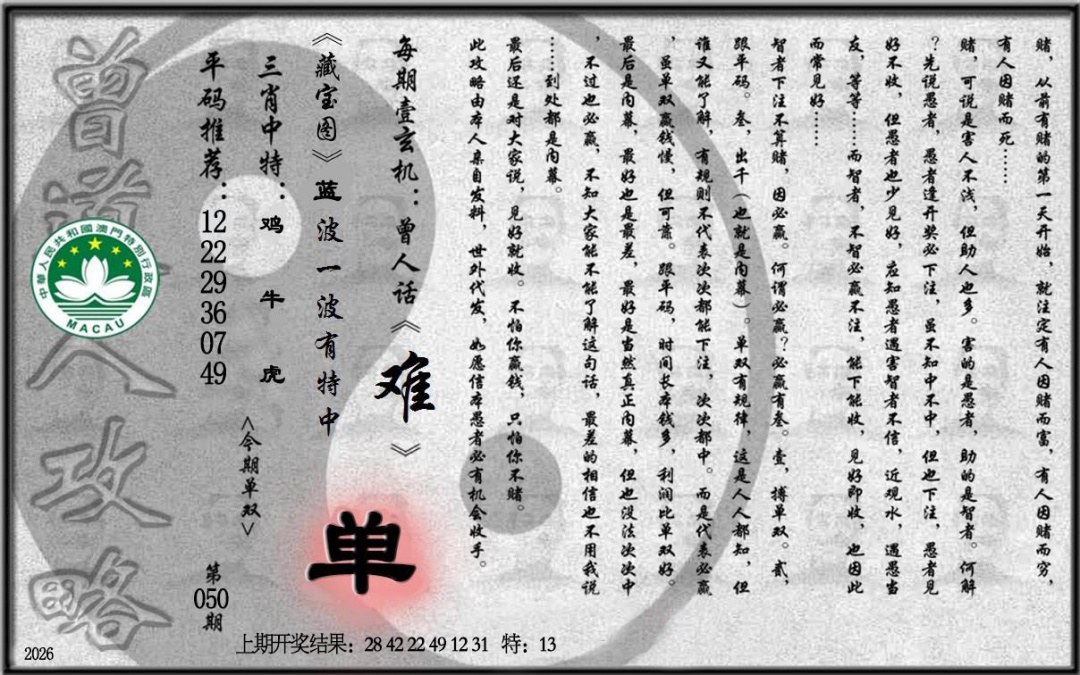 赌，从前有赌的第一天开始，就注定有人因赌而富，有人因赌而穷，
有人因赌而死……
赌，可说是害人不浅，但助人也多。害的是愚者，助的是智者。何解
？先说愚者，愚者逢开奖必下注，虽不知中不中，但也下注，愚者见
好不收，但愚者也少见好，应知愚者遇害智者不信，近观水，遇愚当
友，等等……而智者，不智必赢不注，能下能收，见好即收，也因此
而常见好……
智者下注不算赌，因必赢。何谓必赢？必赢有叁。壹，搏单双。贰，
跟单码。叁，出千（也就是内幕）。单双有规律，这是人人都知，但
谁又能了解，有规则不代表次次都能下注，次次都中。而是代表必赢
，虽单双赢钱慢，但可靠。跟单码，时间长本钱多，利润比单双好。
最后是内幕，最好也是最差，最好是当然真正内幕，但也没法次次中
，不过也必赢，不知大家能不能了解这句话，最差的相信也不用我说
……到处都是内幕。
最后还是对大家说，见好就收。不怕你赢钱，只怕你不赌。
此攻略由本人亲自发料，世外代发，如愿信本愚者必有机会收手。
每期壹玄机：曾人话《难》
《藏宝图》蓝波一波有特中
单
三肖中特：鸡 牛 虎
<今期单双>
平码推荐：12 22 29 36 07 49
第050期
曾道人攻略
中華人民共和國澳門特別行政區
MACAU
上期开奖结果：28 42 22 49 12 31 特：13
2026